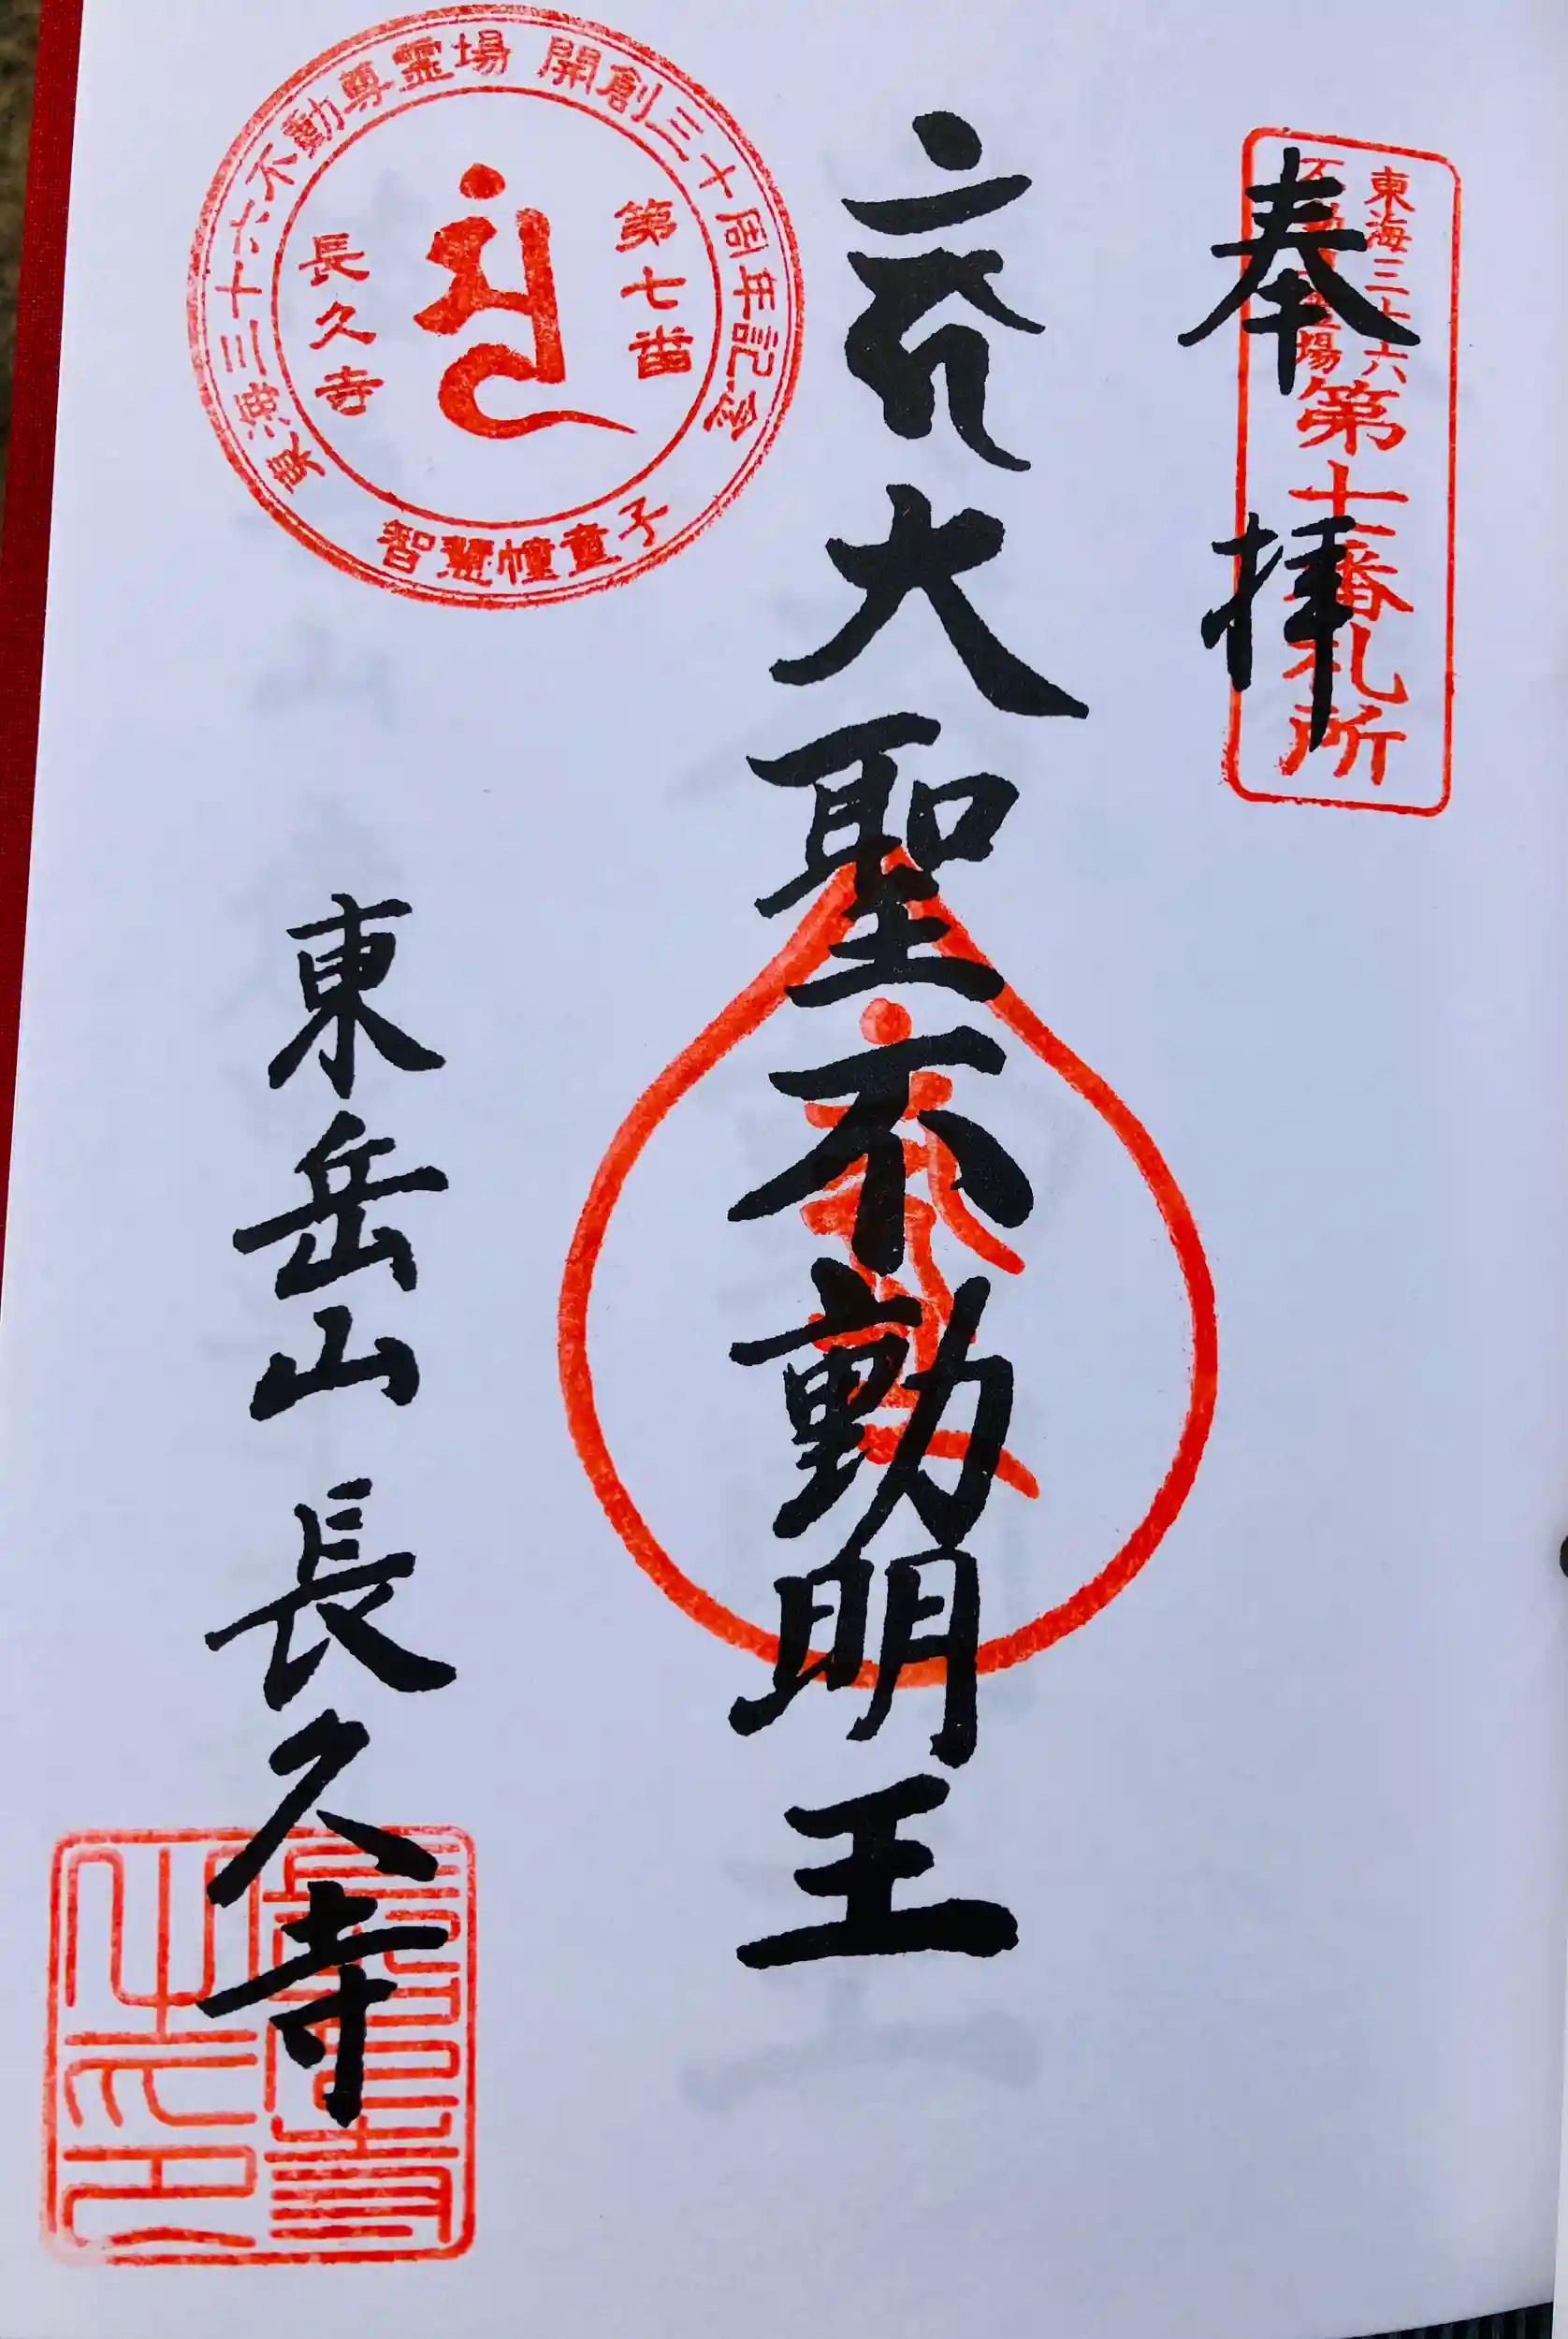 東海三十六
不動尊霊場
第七番札所
奉拝
大聖不動明王
東海三十六不動尊霊場 開創三十周年記念
第七番
長久寺
智慧幢童子
東岳山 長久寺
長久寺
之印